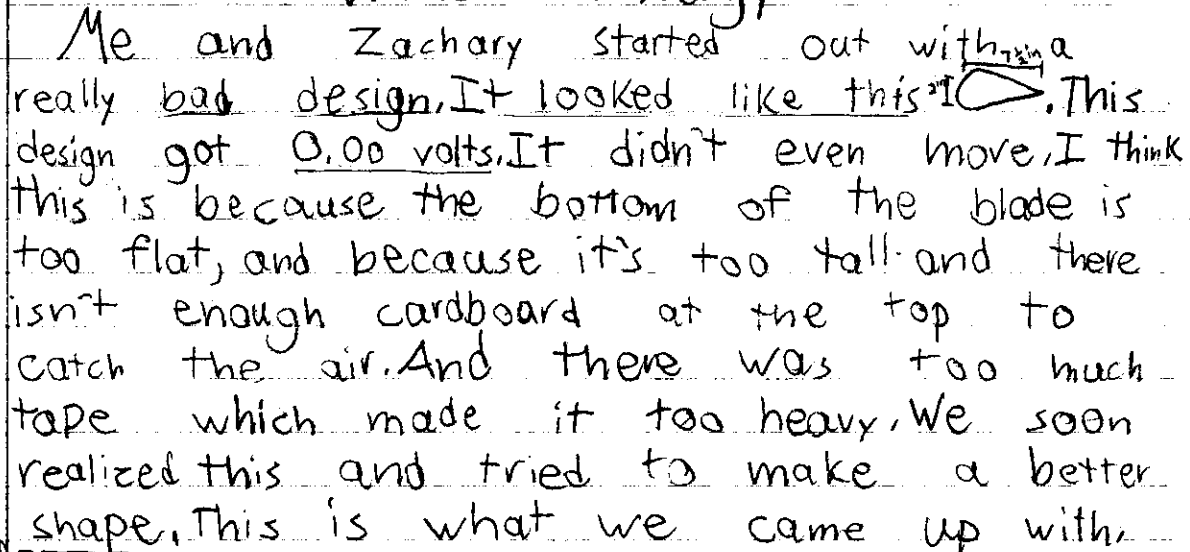 Me and Zachary started out with a
really bad design. It looked like this 2" . This
design got 0.00 volts. It didn't even move. I think
this is because the bottom of the blade is
too flat, and because it's too tall and there
isn't enough cardboard at the top to
catch the air. And there was too much
tape which made it too heavy. We soon
realized this and tried to make a better
shape. This is what we came up with.